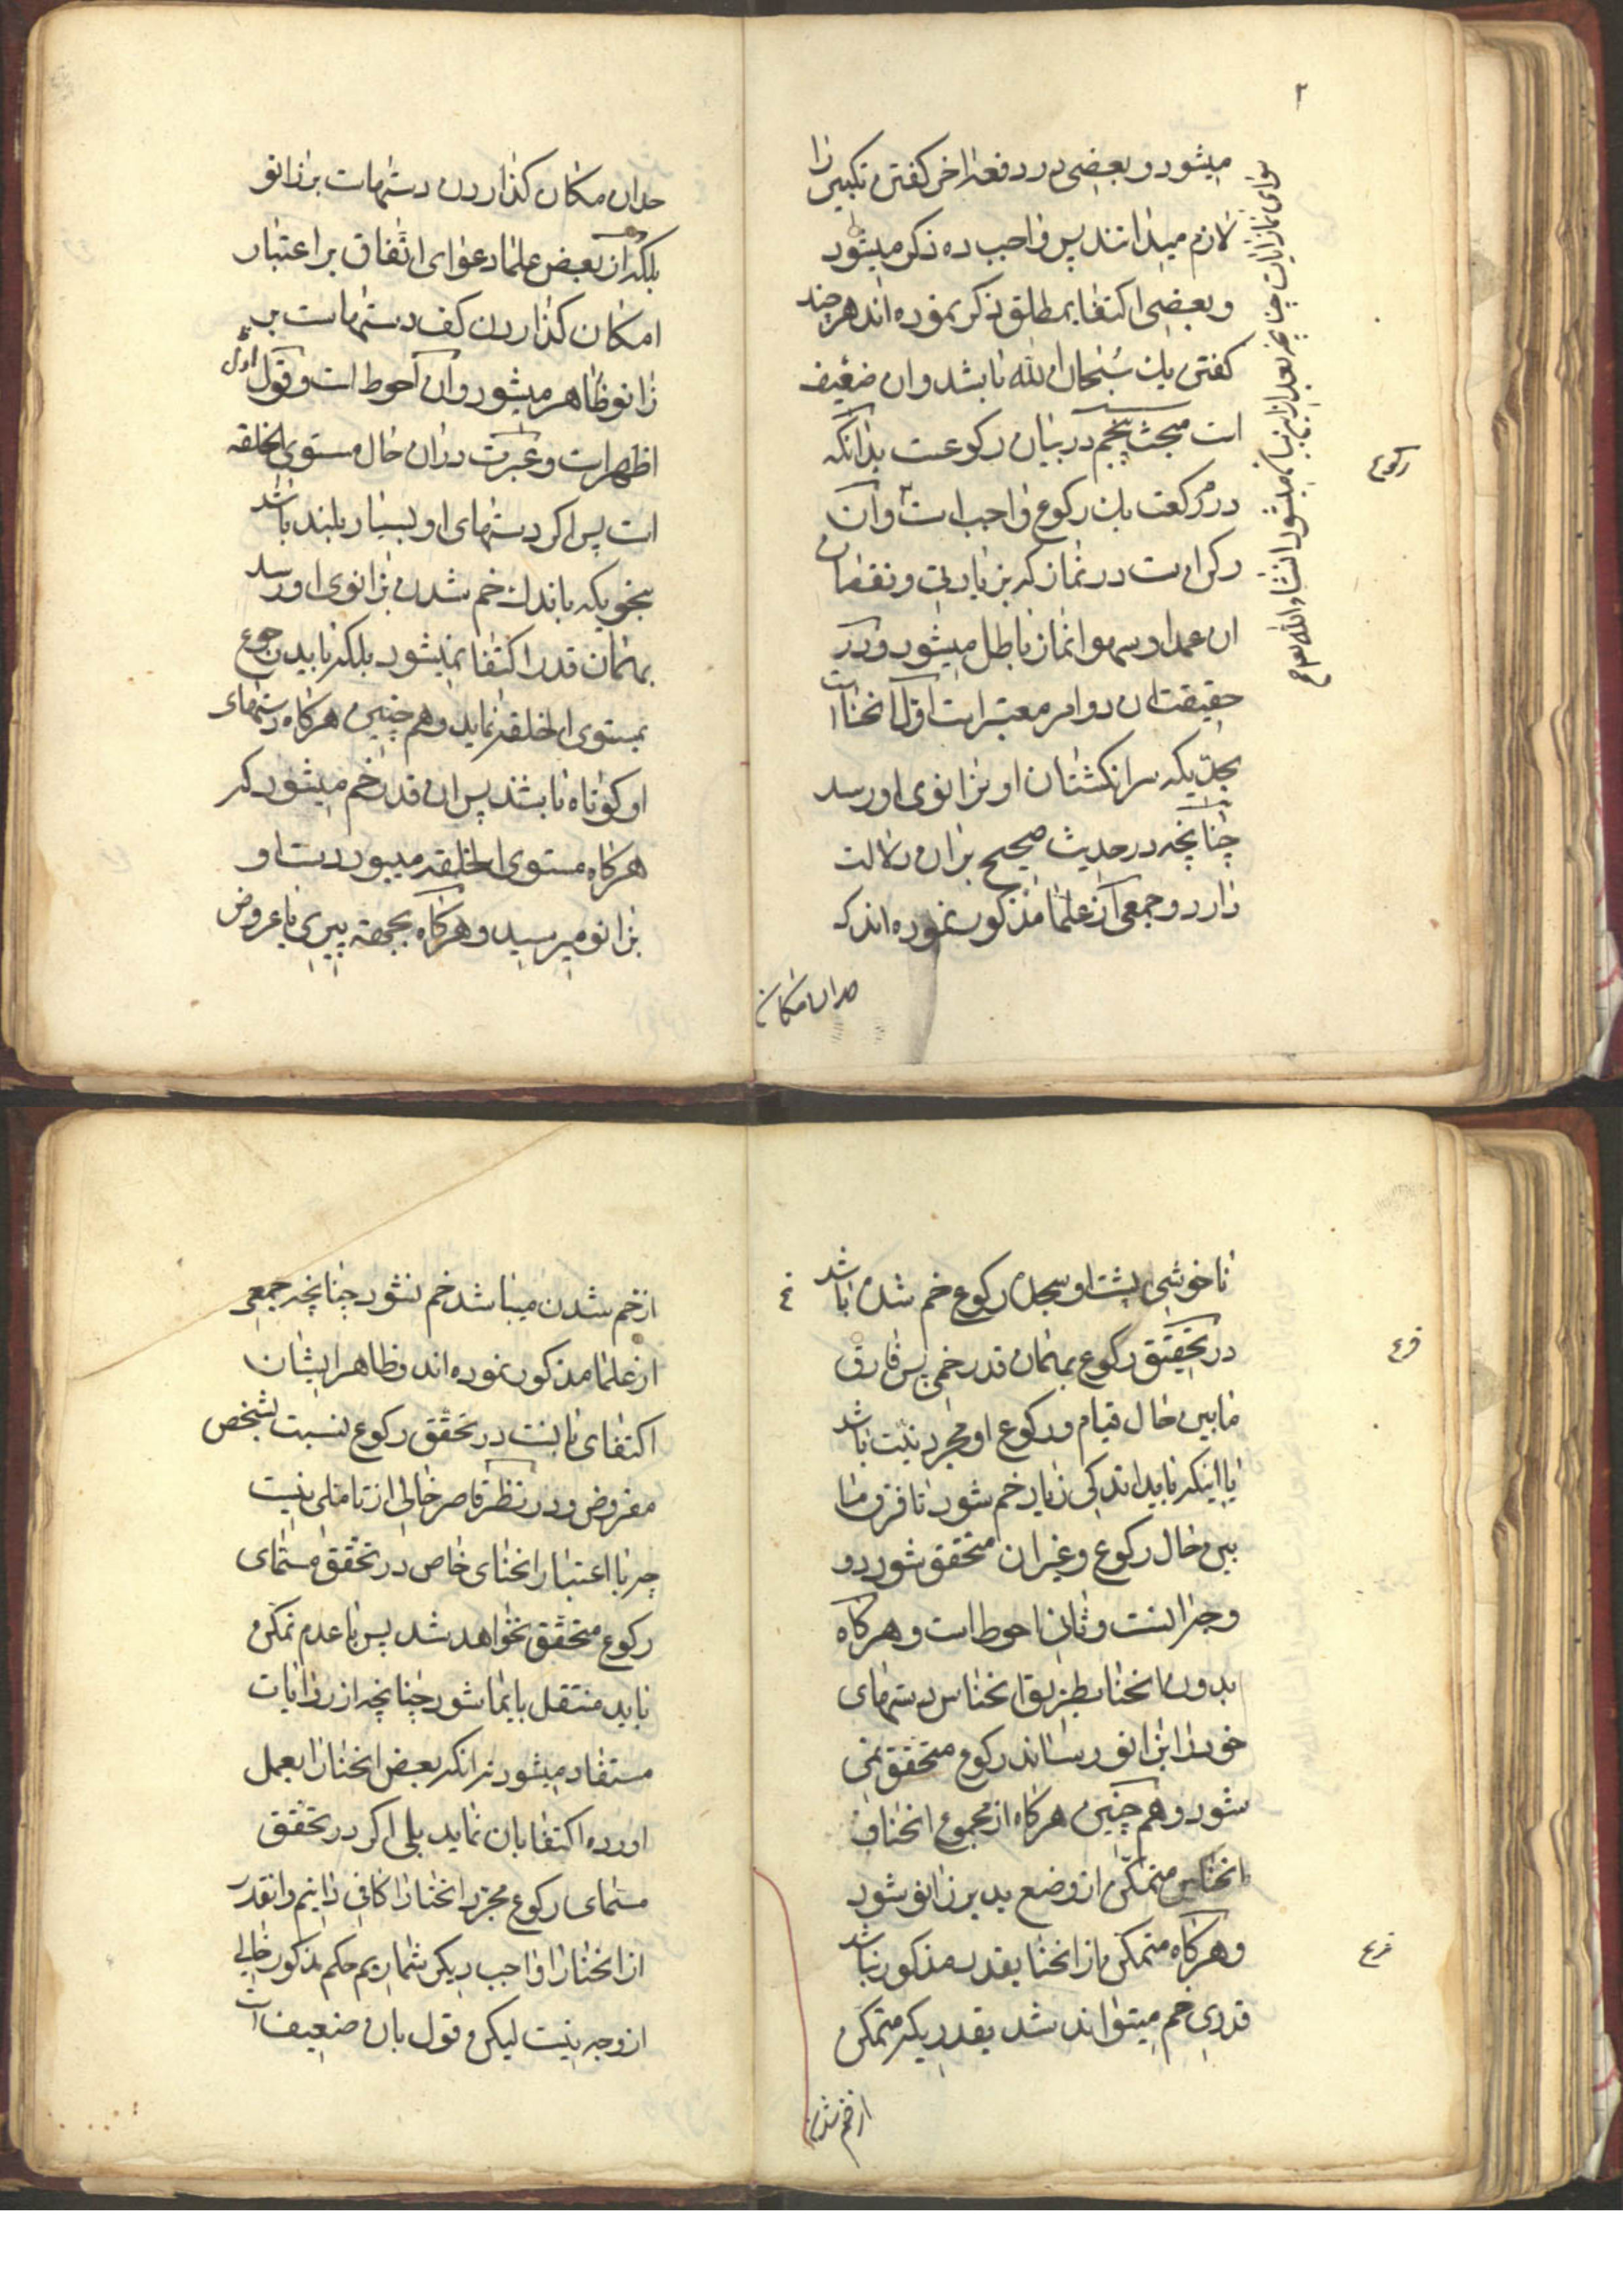 ۲
میشود و بعضی در دفعه اخر کفتن تکبیر را
لازم میدانند پس واجب ده ذکر میشود
و بعضی اکتفا بمطلق ذکر نموده اند هر چند
کفتن یك سُبْحان الله باشد و ان ضعیف
است مبحث پنجم در بیان رکوعست بدانکه
در هر رکعت یك رکوع واجب است و آن
رکن است در نماز که بزیادتی و نقصان
ان عمدا و سهوا نماز باطل میشود و در
حقیقت ان دو امر معتبر است اول انحنا است
بحدیکه سر انکشتان او بزانوی او رسد
چنانچه در حدیث صحیح بر ان دلالت
دارد و جمعی از علما مذکور نموده اند که
حد ان مکان
سوای نماز ایات چنانچه بعد از این بیان میشود انشاء الله
رکوع
حد ان مکان کذاردن دستهاست بر زانو
بلکه از بعض علما دعوای اتفاق بر اعتبار
امکان کذاردن کف دستهاست بر
زانو ظاهر میشود و ان احوط است و قول اول
اظهر است و عبرت در ان حال مستوی الخلقه
است پس اکر دستهای او بسیار بلند باشد
بنحویکه باندك خم شدن بزانوی او رسد
بهمان قدر اکتفا نمیشود بلکه باید رجوع
بمستوی الخلقه نماید و هم چنین هرکاه دستهای
او کوتاه باشد پس ان قدر خم میشود که
هرکاه مستوی الخلقه میبود دست او
بزانو میرسید و هرکاه بجهة پیری یا عروض
ناخوشی پشت او بحد رکوع خم شده باشد
در تحقیق رکوع بهمان قدر خمی پس فارق
مابین حال قیام و رکوع او مجرد نیت باشد
یا اینکه باید اندکی زیاد خم شود تا فرق ما
بین حال رکوع و غیر ان متحقق شود دو
وجه است و ثانی احوط است و هرکاه
بدون انحنا بطریق انخناس دستهای
خود را بزانو رساند رکوع متحقق نمی
شود و هم چنین هرکاه از مجموع انحنا و
انخناس متمکن از وضع ید بر زانو شود
و هرکاه متمکن از انحنا بقدر مذکور نباشد
قدری خم میتواند شد بقدریکه متمکن
از خم شدن
فرع
فرع
از خم شدن میباشد خم نشود چنانچه جمعی
از علما مذکور نموده اند و ظاهر ایشان
اکتفای بانست در تحقق رکوع نسبت بشخص
مفروض و در نظر قاصر خالی از تاملی نیست
چه با اعتبار انحنای خاص در تحقق مسمای
رکوع متحقق نخواهد شد پس با عدم تمکن
باید منتقل بایما شود چنانچه از روایات
مستفاد میشود نه انکه بعض انحنا را بعمل
اورده اکتفا بان نماید بلی اکر در تحقق
مسمای رکوع مجرد انحنا را کافی دانیم و انقدر
از انحنا را واجب دیکر شماریم حکم مذکور خالی
از وجه نیست لیکن قول بان ضعیف است